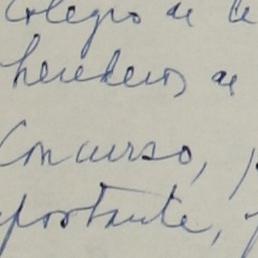 Colegio de
herederos de
Concurso,
portante,